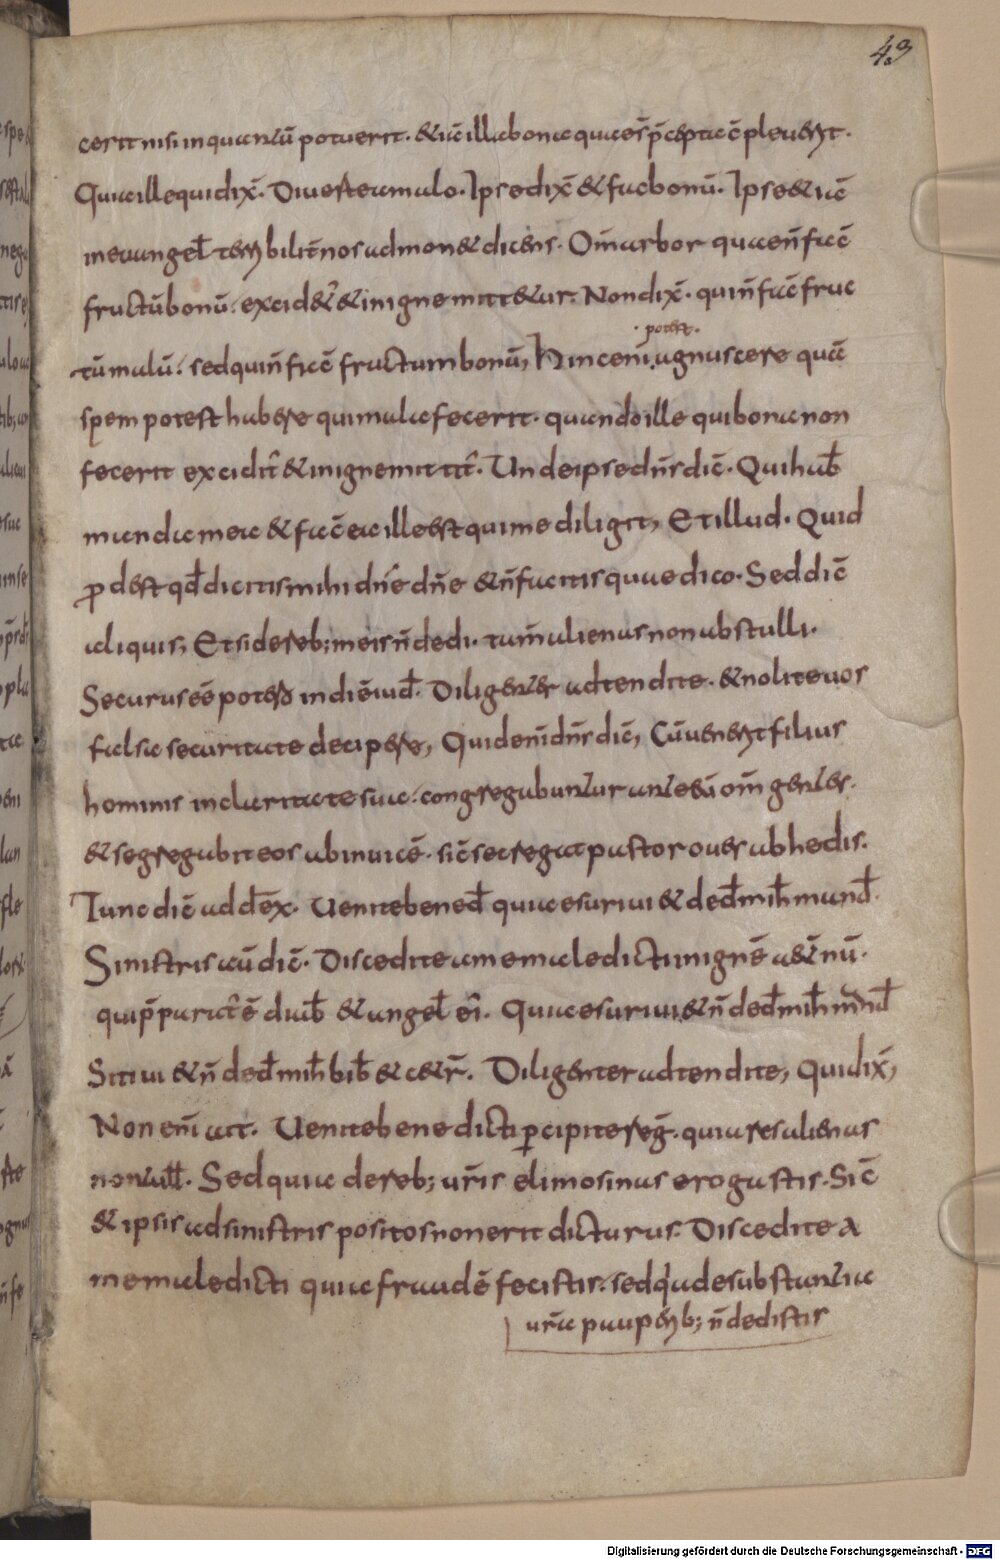 49
cerit nisi inquantū potuerit. & uē illa bona quae s̄ p̄cepta ē pleuerit.
Quia ille qui dix̄. Diuerte a malo. Ipse dix̄ & fac bonū. Ipse & iā ē
in euangel̄ terribilit̄ nos admon& dicens. Om̄ arbor quae n̄ facē
fructū bonū. excid&ur & in igne mitt&ur. Non dix̄. qui n̄ facē fruc
potest
tū malū. sed qui n̄ facē fructum bonū; Hinc enī agnuscere quā
spem potest habere qui mala fecerit. quando ille qui bona non
fecerit excidit̄ & in igne mittit̄. Unde ipse dn̄s dic̄. Qui hab̄
mandamea & facē ea ille est qui me diligit; Et illud. Quid
ꝓdest qd̄ dicitis mihi dn̄e dn̄e & n̄ facitis quae dico. Sed dic̄
aliquis; Et si de reb; meis n̄ dedi. tam̄ alienas non abstulli.
Securus eē potero in diē iud̄. Diligenter adtendite. & nolite uos
falsa securitate decipere; Quid enī dn̄s dic̄; Cū uenerit filius
hominis in claritate sua. congregabuntur ante eū om̄ gentes.
& segregabit eos ab inuicē. sic̄ segregat pastor oues ab hedis.
Tunc dic̄ ad dex̄. Uenite bened̄ quia esuriui & ded̄ mih̄ mand̄.
Sinistris aū dic̄. Discedite a me maledicti in ignē aet̄nū.
qui p̄parat̄ ē diab̄ & angel̄ ei. Quia esuriui & n̄ ded̄ mih̄ mand̄
Sitiui & n̄ ded̄ mih̄ bib̄ & c&r̄. Diligenter adtendite; Quid dix̄;
Non enī ait. Uenite benedicti ꝑcipite reḡ. quia res alienas
non tull̄. Sed quia de reb; ur̄is elimosinas erogastis. Sic̄
& ipsis ad sinistris positos non erit dicturus. Discedite a
me maledicti quia fraudē fecistis. sed qa de substantia
ur̄a pauperib; n̄ dedistis
Digitalisierung gefördert durch die Deutsche Forschungsgemeinschaft - DFG